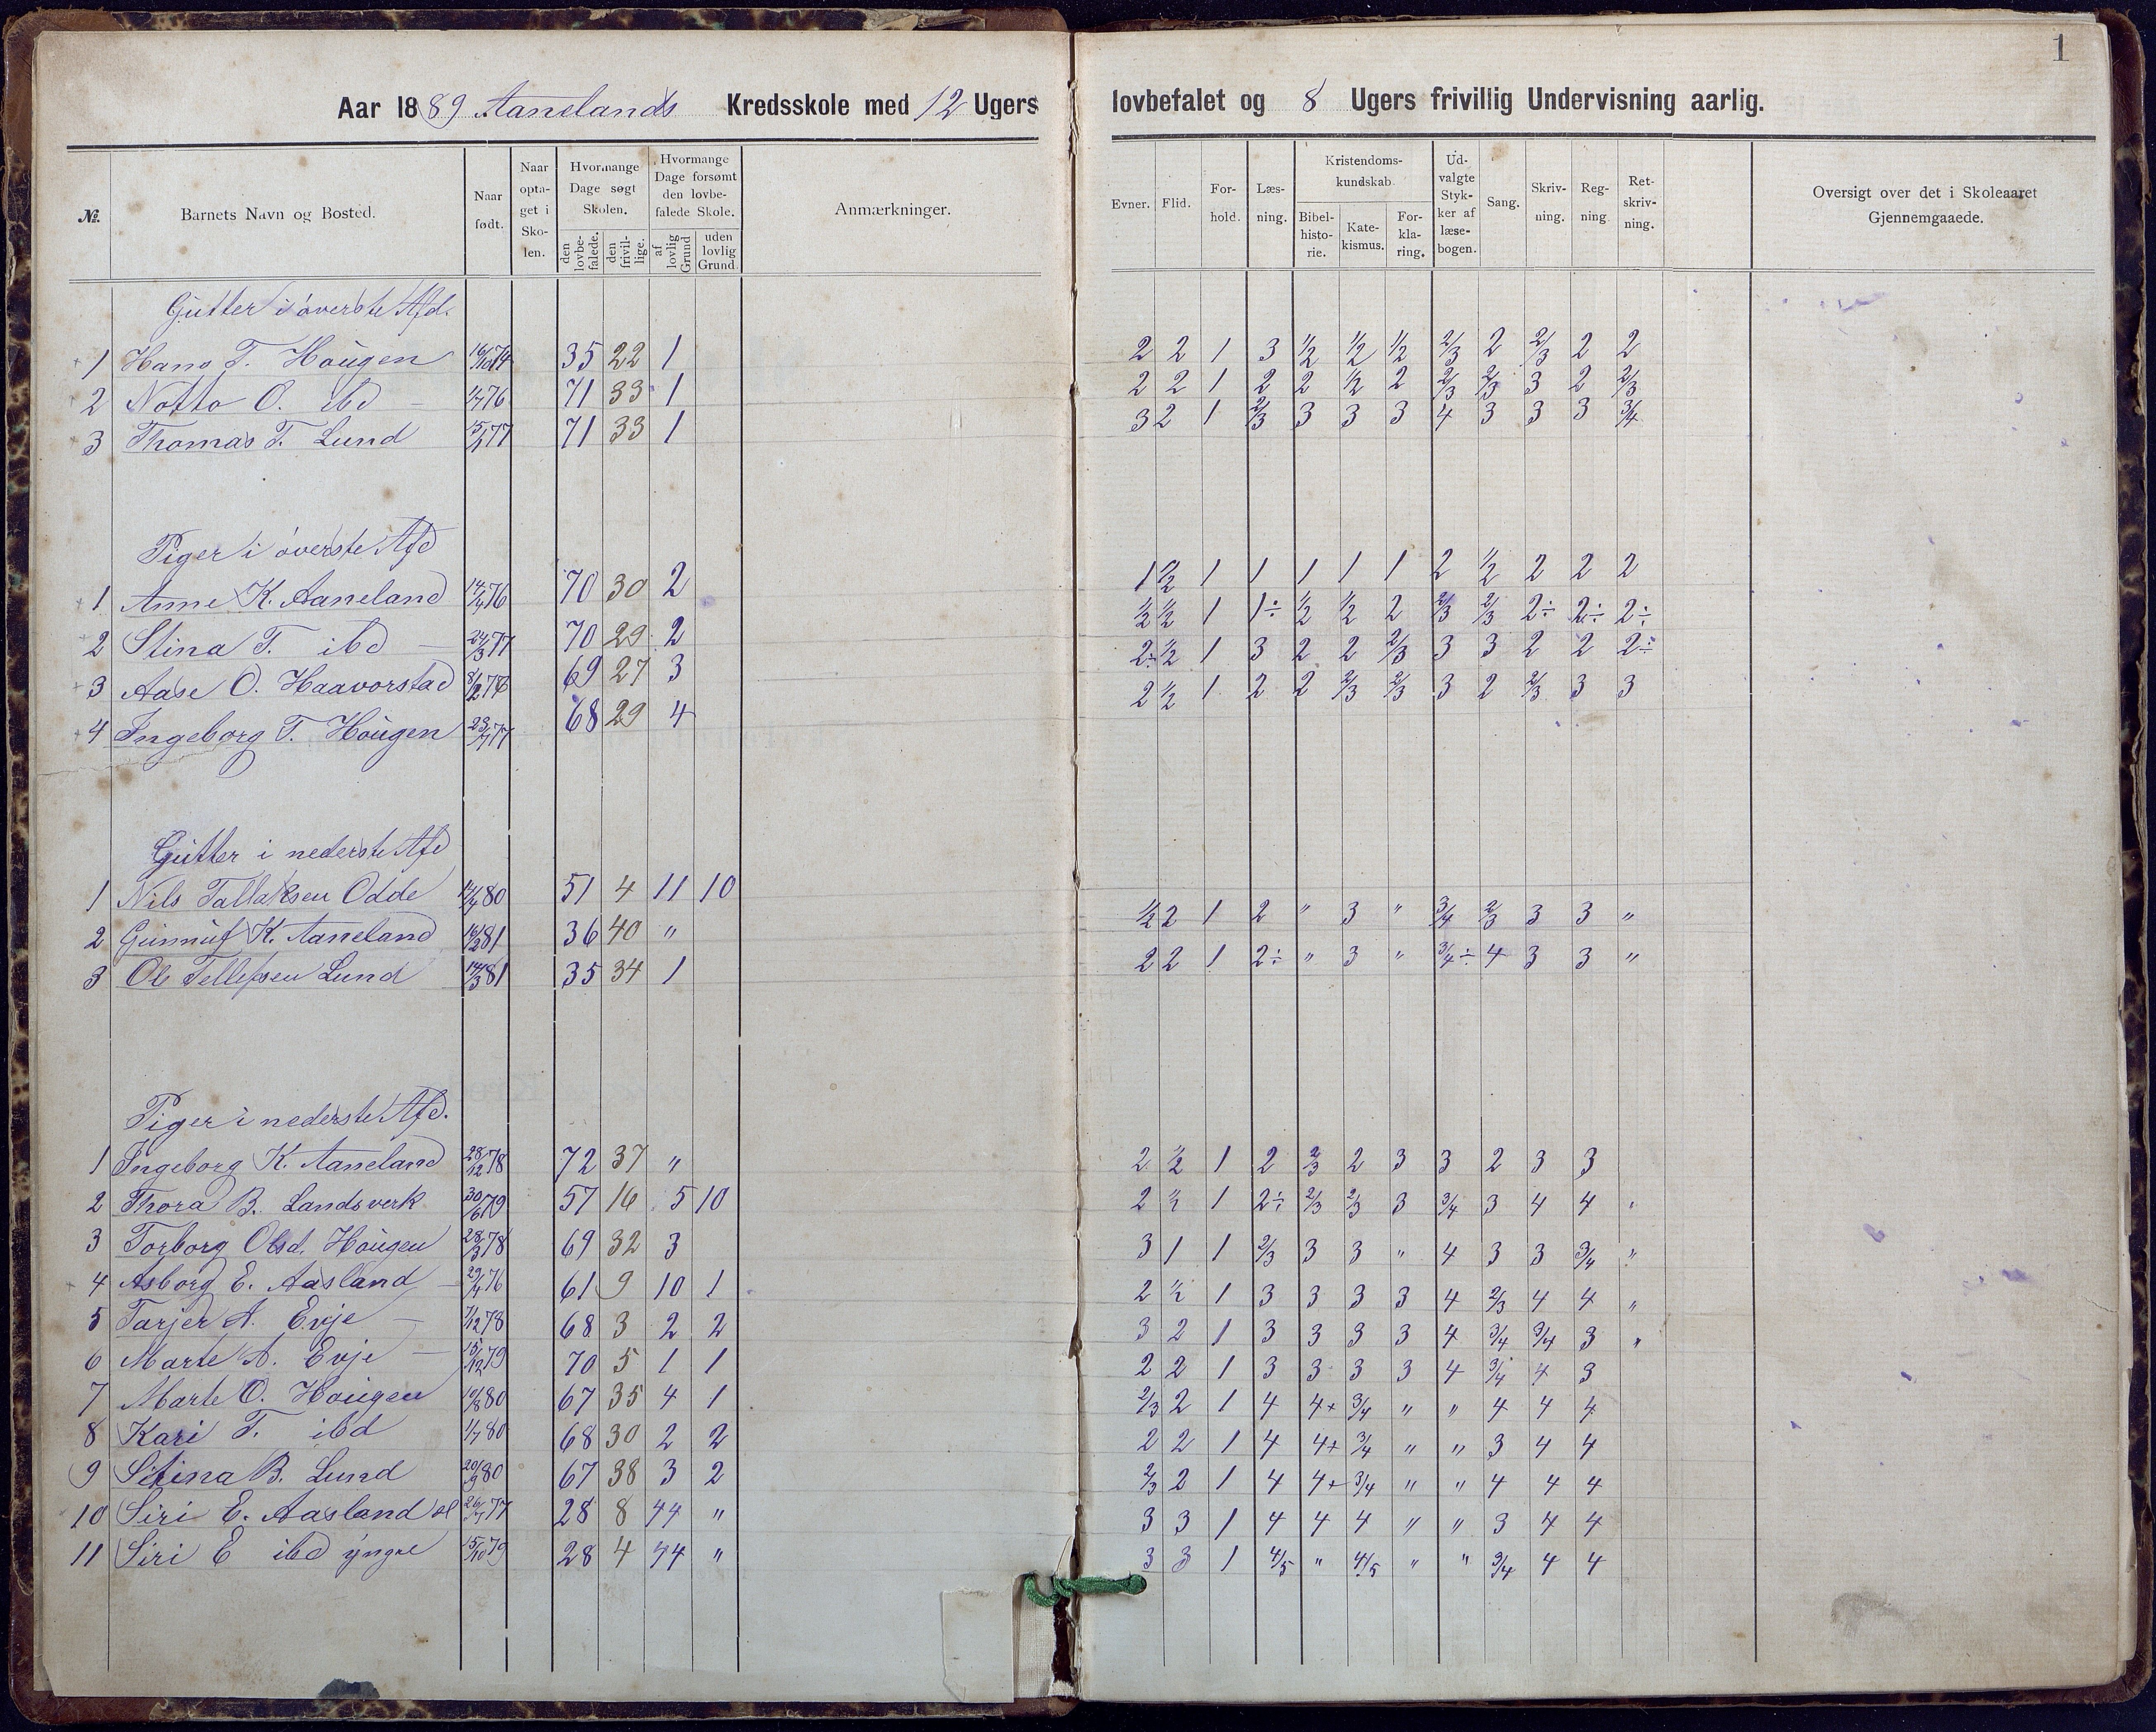 1
Aar 1889 Aanelands Kredsskole med 12 Ugers lovbefalet og 8 Ugers frivillig Undervisning aarlig.
No. Barnets Navn og Bosted. Naar født. Naar optaget i Skolen. Hvormange Dage søgt Skolen. den lovbefalede. den frivillige. Hvormange Dage forsømt den lovbefalede Skole. af lovlig Grund uden lovlig Grund. Anmærkninger. Evner. Flid. Forhold. Læsning. Kristendomskundskab. Bibelhistorie. Katekismus. Forklaring. Udvalgte Stykker af læsebogen. Sang. Skrivning. Regning. Retskrivning. Oversigt over det i Skoleaaret Gjennemgaaede.
Gutter i øverste Afd.
1 Hans T. Hougen 16/10 74 35 22 1 2 2 1 3 1/2 1/2 1/2 2/3 2 2/3 2 2
2 Notto O. ibd — 1/7 76 71 33 1 2 2 1 2 2 1/2 2 2/3 2/3 3 2 2/3
3 Thomas T. Lund 77 71 33 1 3 2 1 2/3 3 3 3 4 3 3 3 3/4
Piger i øverste Afd
1 Anne K. Aaneland 76 70 30 2 1 1/2 1 1 1 1 1 2 1/2 2 2 2
2 Stina T. ibd — 24/3 77 70 29 2 1/2 1/2 1 1÷ 1/2 1/2 2 2/3 2/3 2÷ 2÷ 2÷
3 Aase O. Haavorstad 69 27 3 2÷ 1/2 1 3 2 2 2/3 3 3 2 2 2÷
4 Ingeborg T. Hougen 77 68 29 4 2 1/2 1 2 2 2/3 2/3 3 2 2/3 3 3
Gutter i nederste Afd
1 Nils Tallaksen Odde 80 51 4 11 10
2 Gunnuf K. Aaneland 81 36 40 " 1/2 2 1 2 " 3 " 3/4 2/3 3 3 "
3 Ole Tellefsen Lund 14/3 81 35 34 1 2 2 1 2÷ " 3 " 3/4÷ 4 3 3 "
Piger i nederste Afd.
1 Ingeborg K. Aaneland 28/12 78 72 37 " 2 1/2 1 2 2/3 2 3 3 2 3 3
2 Thora B. Landsverk 30/6 79 57 16 5 10 2 1/2 1 2÷ 2/3 2/3 3 3/4 3 4 4 "
3 Torborg Olsd. Hougen 28/3 78 69 32 3 3 1 1 2/3 3 3 " 4 3 3 3/4 "
4 Asborg E. Aasland — 76 61 9 10 1 2 1/2 1 3 3 3 3 4 2/3 4 4 "
5 Tarjer A. Evje — 7/12 78 68 3 2 2 3 2 1 3 3 3 3 4 3/4 3/4 3 "
6 Marte A. Evje — 15/12 79 70 5 1 1 2 2 1 3 3 3 3 4 3/4 4 3
7 Marte O. Hougen 10/8 80 67 35 4 1 2/3 2 1 4 4+ 3/4 " " 4 4 4
8 Kari T. ibd 1/7 80 68 30 2 2 2 2 1 4 4+ 3/4 " " 3 4 4
9 Stina B. Lund 20/9 80 67 38 3 2 2/3 2 1 4 4+ 3/4 " " 4 4 4
10 Siri E. Aasland 77 28 8 44 " 3 3 1 4 4 4 " " 3 4 4
11 Siri E ibd yngre 15/10 79 28 4 44 " 3 3 1 4/5 " 4/5 " " 3/4 4 4